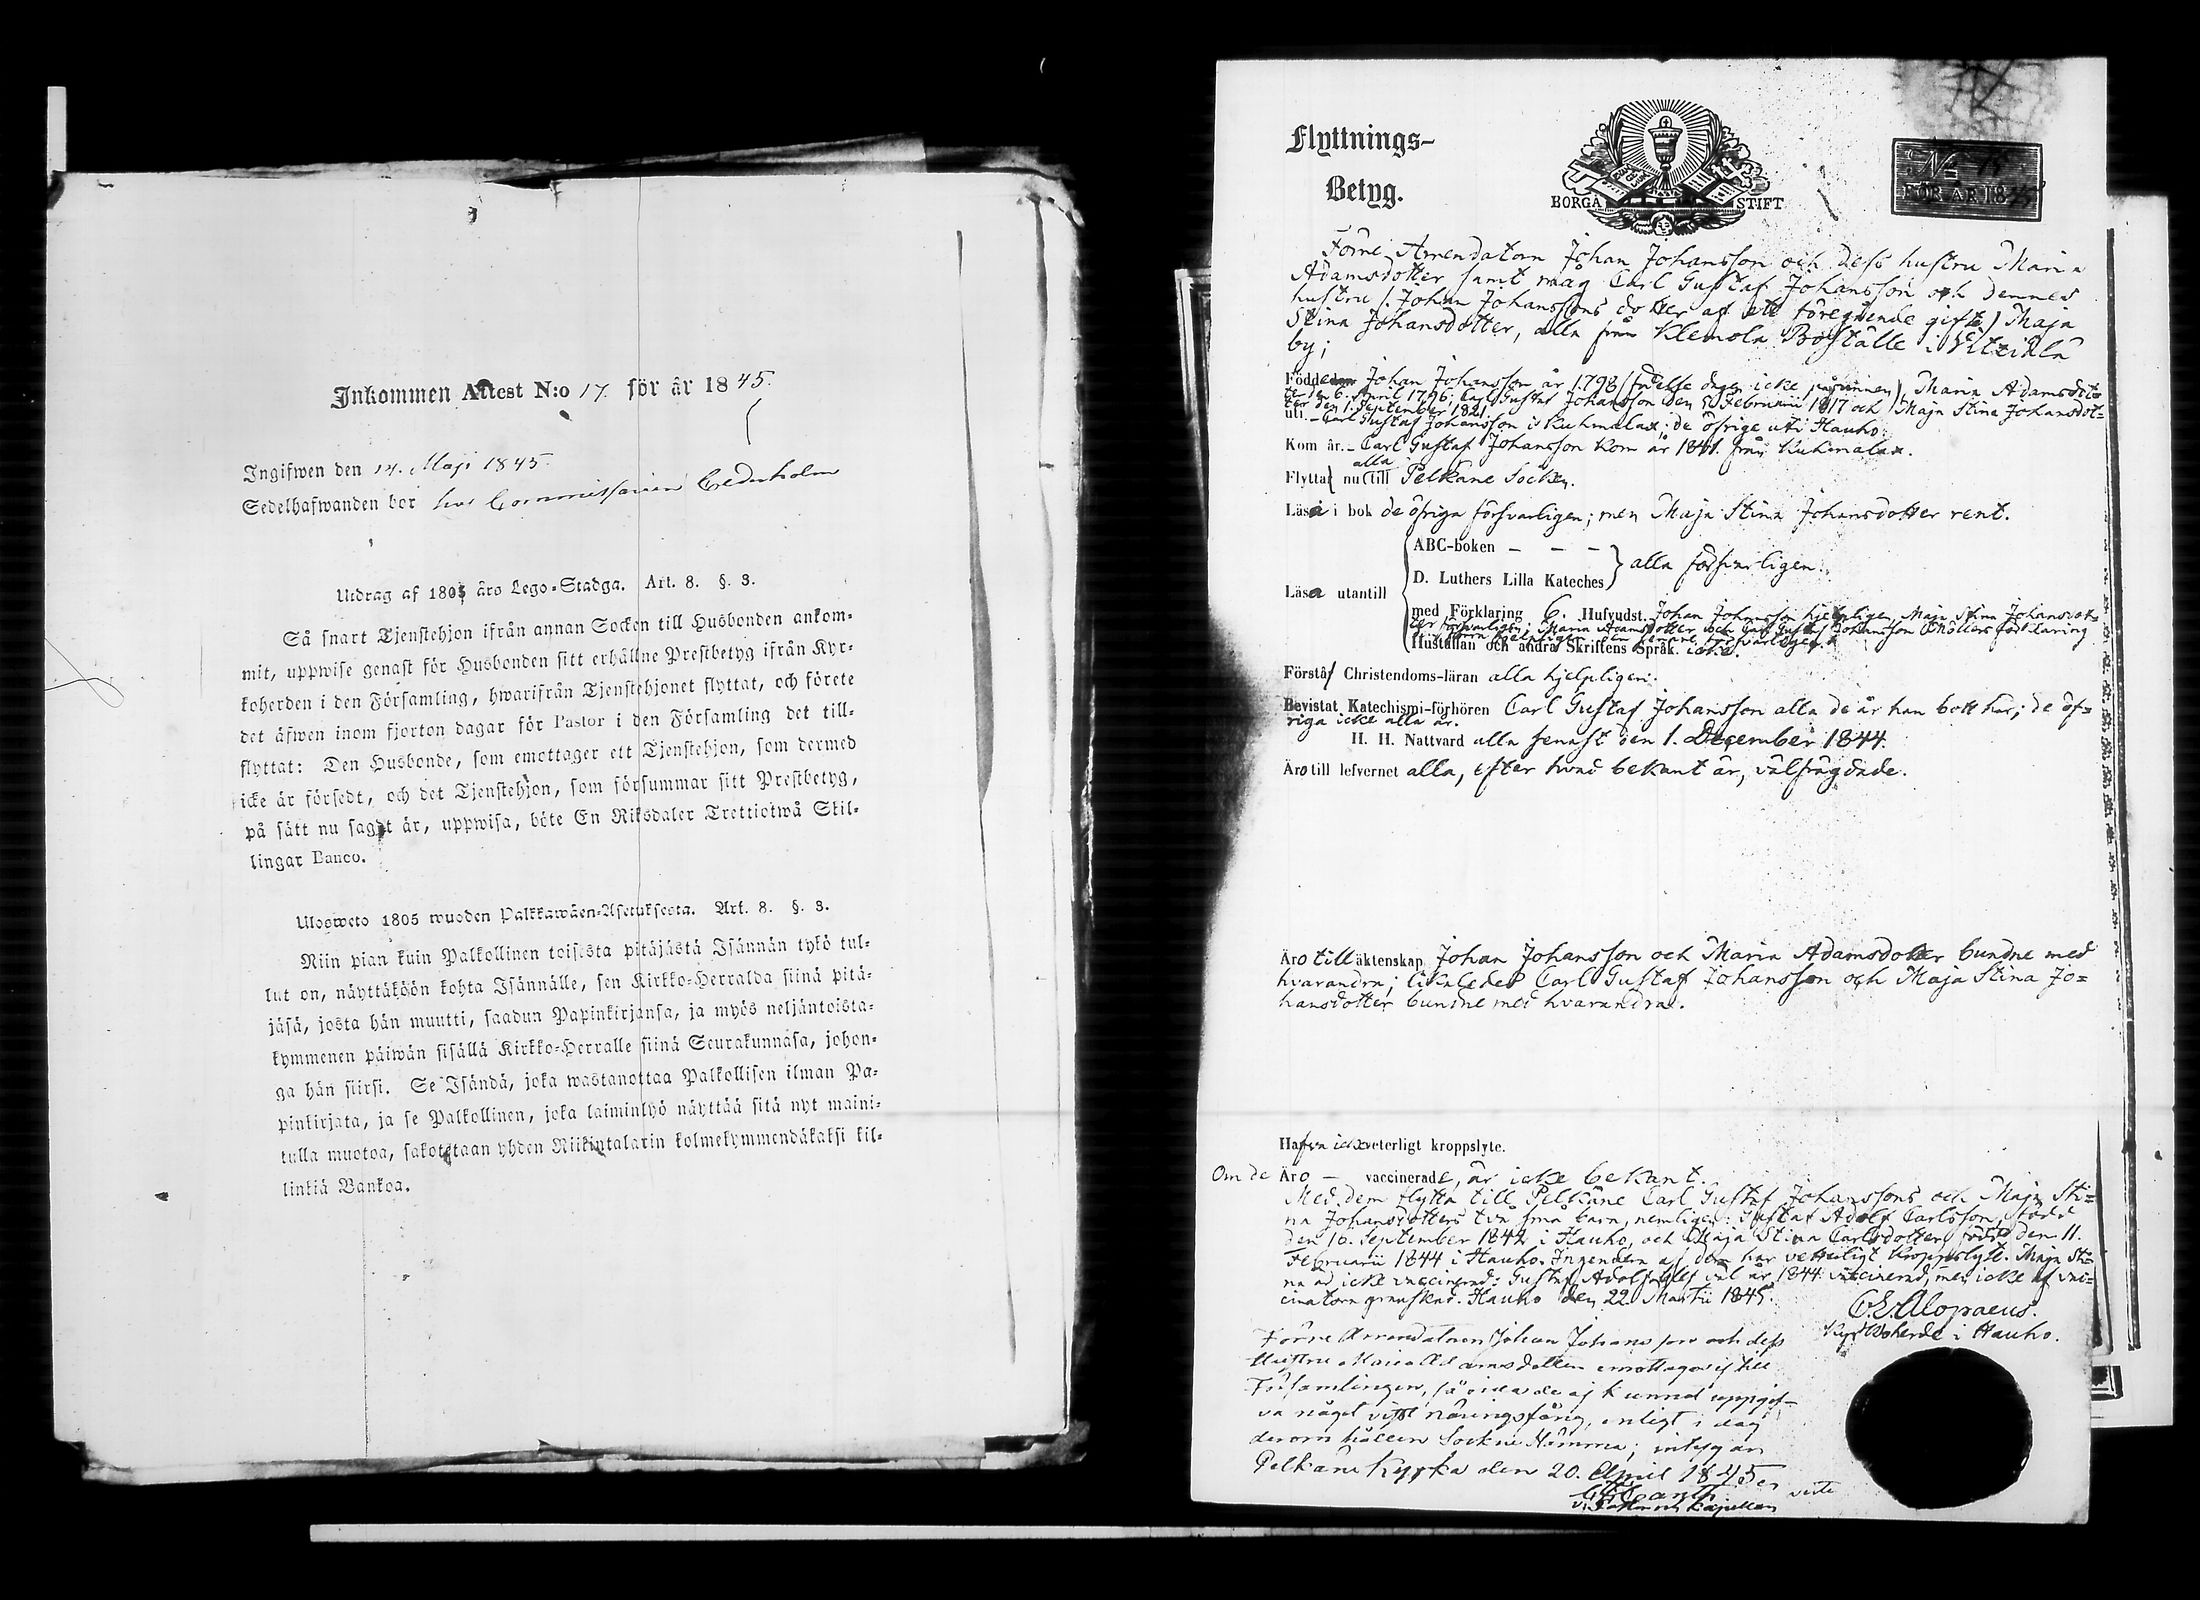 Inkommen Attest N:o 17. för år 1845.
Ingifwen den 14. Maji 1845.
Sedelhafwanden bor hos Commissarien Cederholm
Utdrag af 1805 års Lego-Stadga. Art. 8. §. 3.
Så snart Tjenstehjon ifrån annan Socken till Husbonden ankom-
mit, uppwise genast för Husbonden sitt erhållne Prestbetyg ifrån Kyr-
koherden i den Församling, hwarifrån Tjenstehjonet flyttat, och förete
det äfwen inom fjorton dagar för Pastor i den Församling det till-
flyttat: Den Husbonde, som emottager ett Tjenstehjon, som dermed
icke är försedt, och det Tjenstehjon, som försummar sitt Prestbetyg,
på sätt nu sagdt är, uppwisa, böte En Riksdaler Trettiotwå Skil-
lingar Banco.
Ulosweto 1805 wuoden Palkkawäen-Asetuksesta. Art. 8. §. 3.
Niin pian kuin Palkollinen toisesta pitäjästä Isännän tykö tul-
lut on, näyttäköön kohta Isännälle, sen Kirkko-Herralda siinä pitä-
jäsä, josta hän muutti, saadun Papinkirjansa, ja myös neljäntoista-
kymmenen päiwän sisällä Kirkko-Herralle siinä Seurakunnasa, johon-
ga hän siirsi. Se Isändä, joka wastanottaa Palkollisen ilman Pa-
pinkirjata, ja se Palkollinen, joka laiminlyö näyttää sitä nyt maini-
tulla muotoa, sakotetaan yhden Riikintalarin kolmekymmendäkaksi kil-
linkiä Bankoa.
Flyttnings-
Betyg.
BORGÅ STIFT
No 18
FÖR ÅR 1845
Förre Arrendatorn Johan Johansson och dess hustru Maria
Adamsdotter samt måg Carl Gustaf Johansson och dennes
hustru (: Johan Johanssons dotter af ett föregående gifte) Maja
Stina Johansdotter, alla från Klemola Boställe i Vitzikla
by;
Född Johan Johansson år 1798 (födelse dagen icke ), Maria Adamsdot-
ter den 6. April 1796; Carl Gustaf Johansson den 5 Februarii 1817 och Maja Stina Johansdot-
ter den 1. September 1821.
uti. - Carl Gustaf Johansson i Kuhmalax; de öfrige uti Hauho.
Kom år. - Carl Gustaf Johansson kom år 1841. från Kuhmalax.
Flytta alla nu till Pelkäne Socken.
Läsa i bok de öfriga försvarligen; men Maja Stina Johansdotter rent.
ABC-boken - - -
D. Luthers Lilla Kateches
alla försvarligen.
Läsa utantill
med Förklaring 6. Hufvudst. Johan Johansson hjelpligen, Maja Stina Johansdot-
ter försvarligen; Maria Adamsdotter och Carl Gustaf Johansson Möllers förklaring
Hustaflan och andra Skriftens Språk. icke.
Förstå Christendoms-läran alla hjelpligen.
Bevistat Katechismi-förhören Carl Gustaf Johansson alla de år han bott här; de öf-
riga icke alla år.
H. H. Nattvard alla senast den 1. December 1844.
Äro till lefvernet alla, efter hvad bekant är, välfrägdade.
Äro till äktenskap Johan Johansson och Maria Adamsdotter bundne med
hvarandra; likaledes Carl Gustaf Johansson och Maja Stina Jo-
hansdotter bundne med hvarandra.
Hafva icke veterligt kroppslyte.
Om de Äro - vaccinerade, är icke bekant.
Med dem flytta till Pelkäne Carl Gustaf Johanssons och Maja Sti-
na Johansdotters två små barn, nemligen: Gustaf Adolf Carlsson, född
den 16. September 1842 i Hauho, och Maja Stina Carlsdotter, född den 11.
Februarii 1844 i Hauho. Ingendera af dem har veterligt kroppslyte. Maja Sti-
na är icke vaccinerad; Gustaf Adolf blef väl år 1844 vaccinerad, men icke af vac-
cinatorn granskad. Hauho den 22. Martii 1845.
C. E. Alopaeus.
Kyrkoherde i Hauho.
Förre Arrendatoren Johan Johansson och dess
Hustru Maria Adamsdotter emottages ej till
Församlingen, så de ej kunnat uppgif-
va något visst näringsfång, enligt i dag
derom hållen Sockne Stämma; intygar
Pelkäne Kyrka den 20. April 1845